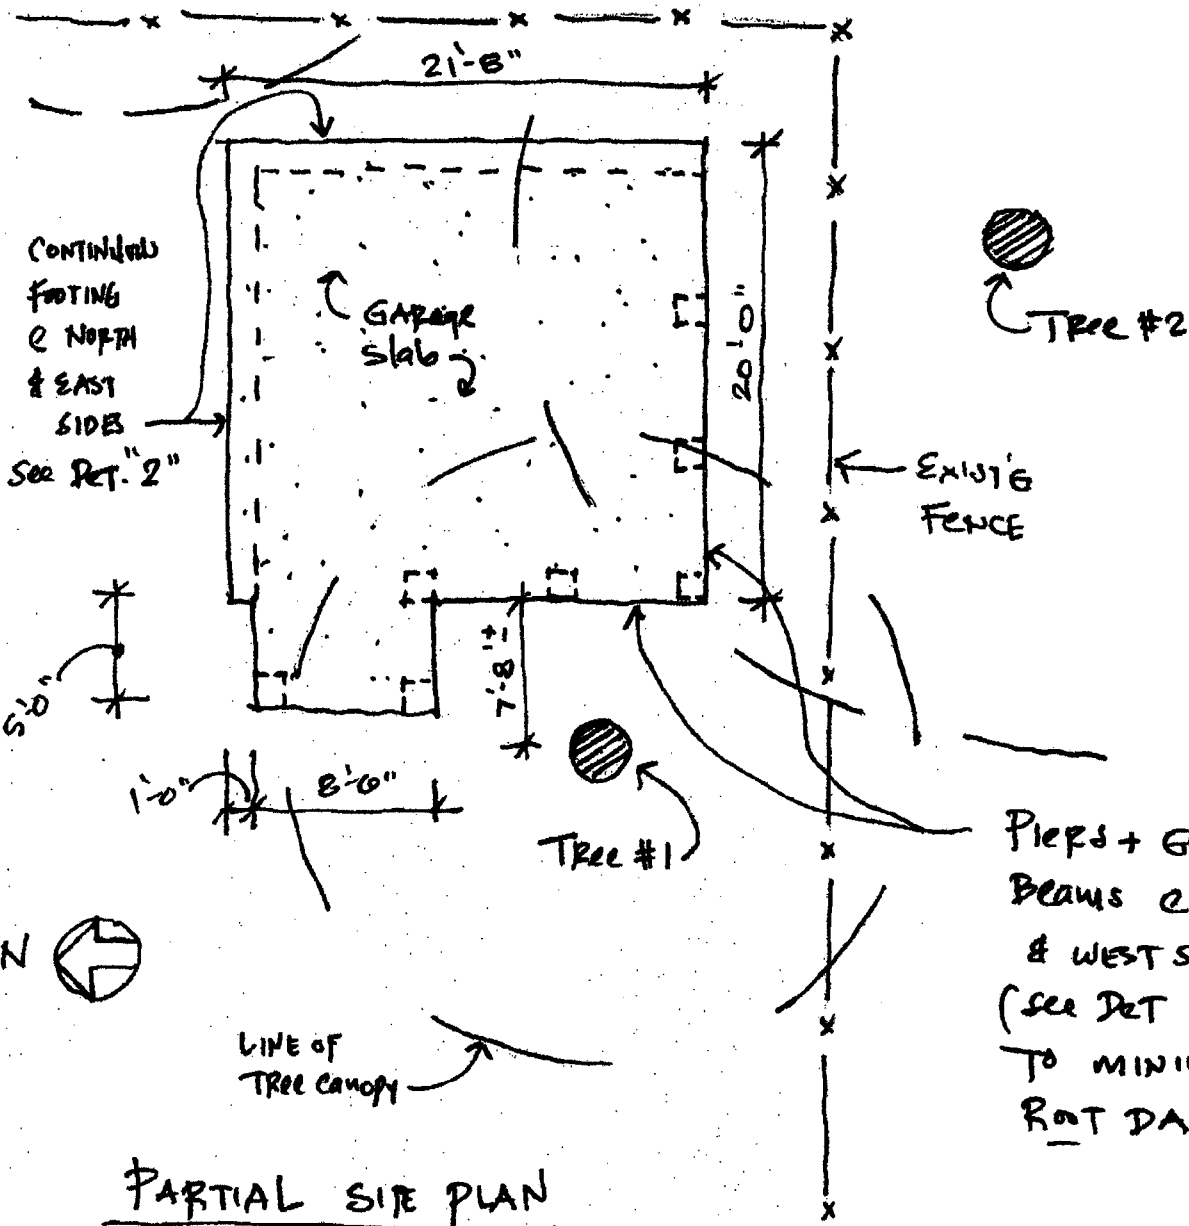 21'-8"
CONTINUOUS
FOOTING
@ NORTH
& EAST
SIDES
See DeT. "2"
GARage
Slab
20'-0"
Tree #2
EXIST'G
FENCE
5'-0"
7'-8"±
1'-0"
8'-6"
Tree #1
Piers + G
Beams @
& WEST S
(See DeT
To MINI
RooT DA
N
LINE OF
TRee Canopy
PARTIAL SITE PLAN